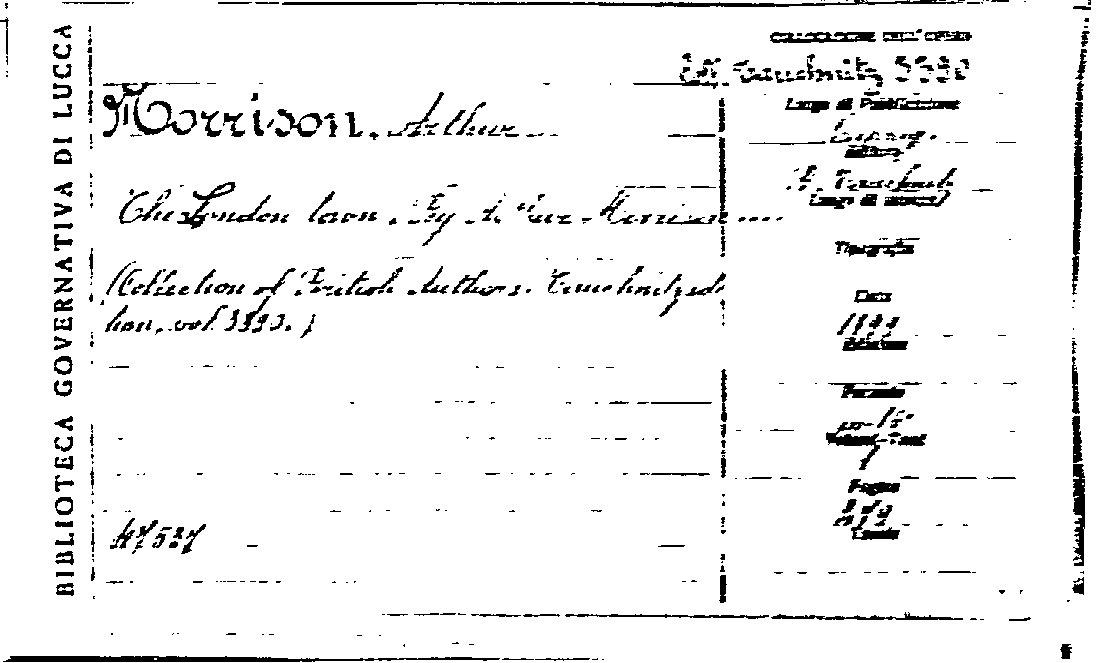 BIBLIOTECA GOVERNATIVA DI LUCCA
COLLOCAZIONE DELL'OPERA
Tauchnitz
Morrison, Arthur
Luogo di Pubblicazione
Editore
The London town. By Arthur Morrison ....
B. Tauchnitz
Luogo di stampa
Tipografia
(Collection of British Authors. Tauchnitz edi-
tion, vol.
Data
1899
Edizione
Formato
in-16°
Volumi-Tomi
1
Pagine
47537
Tavole